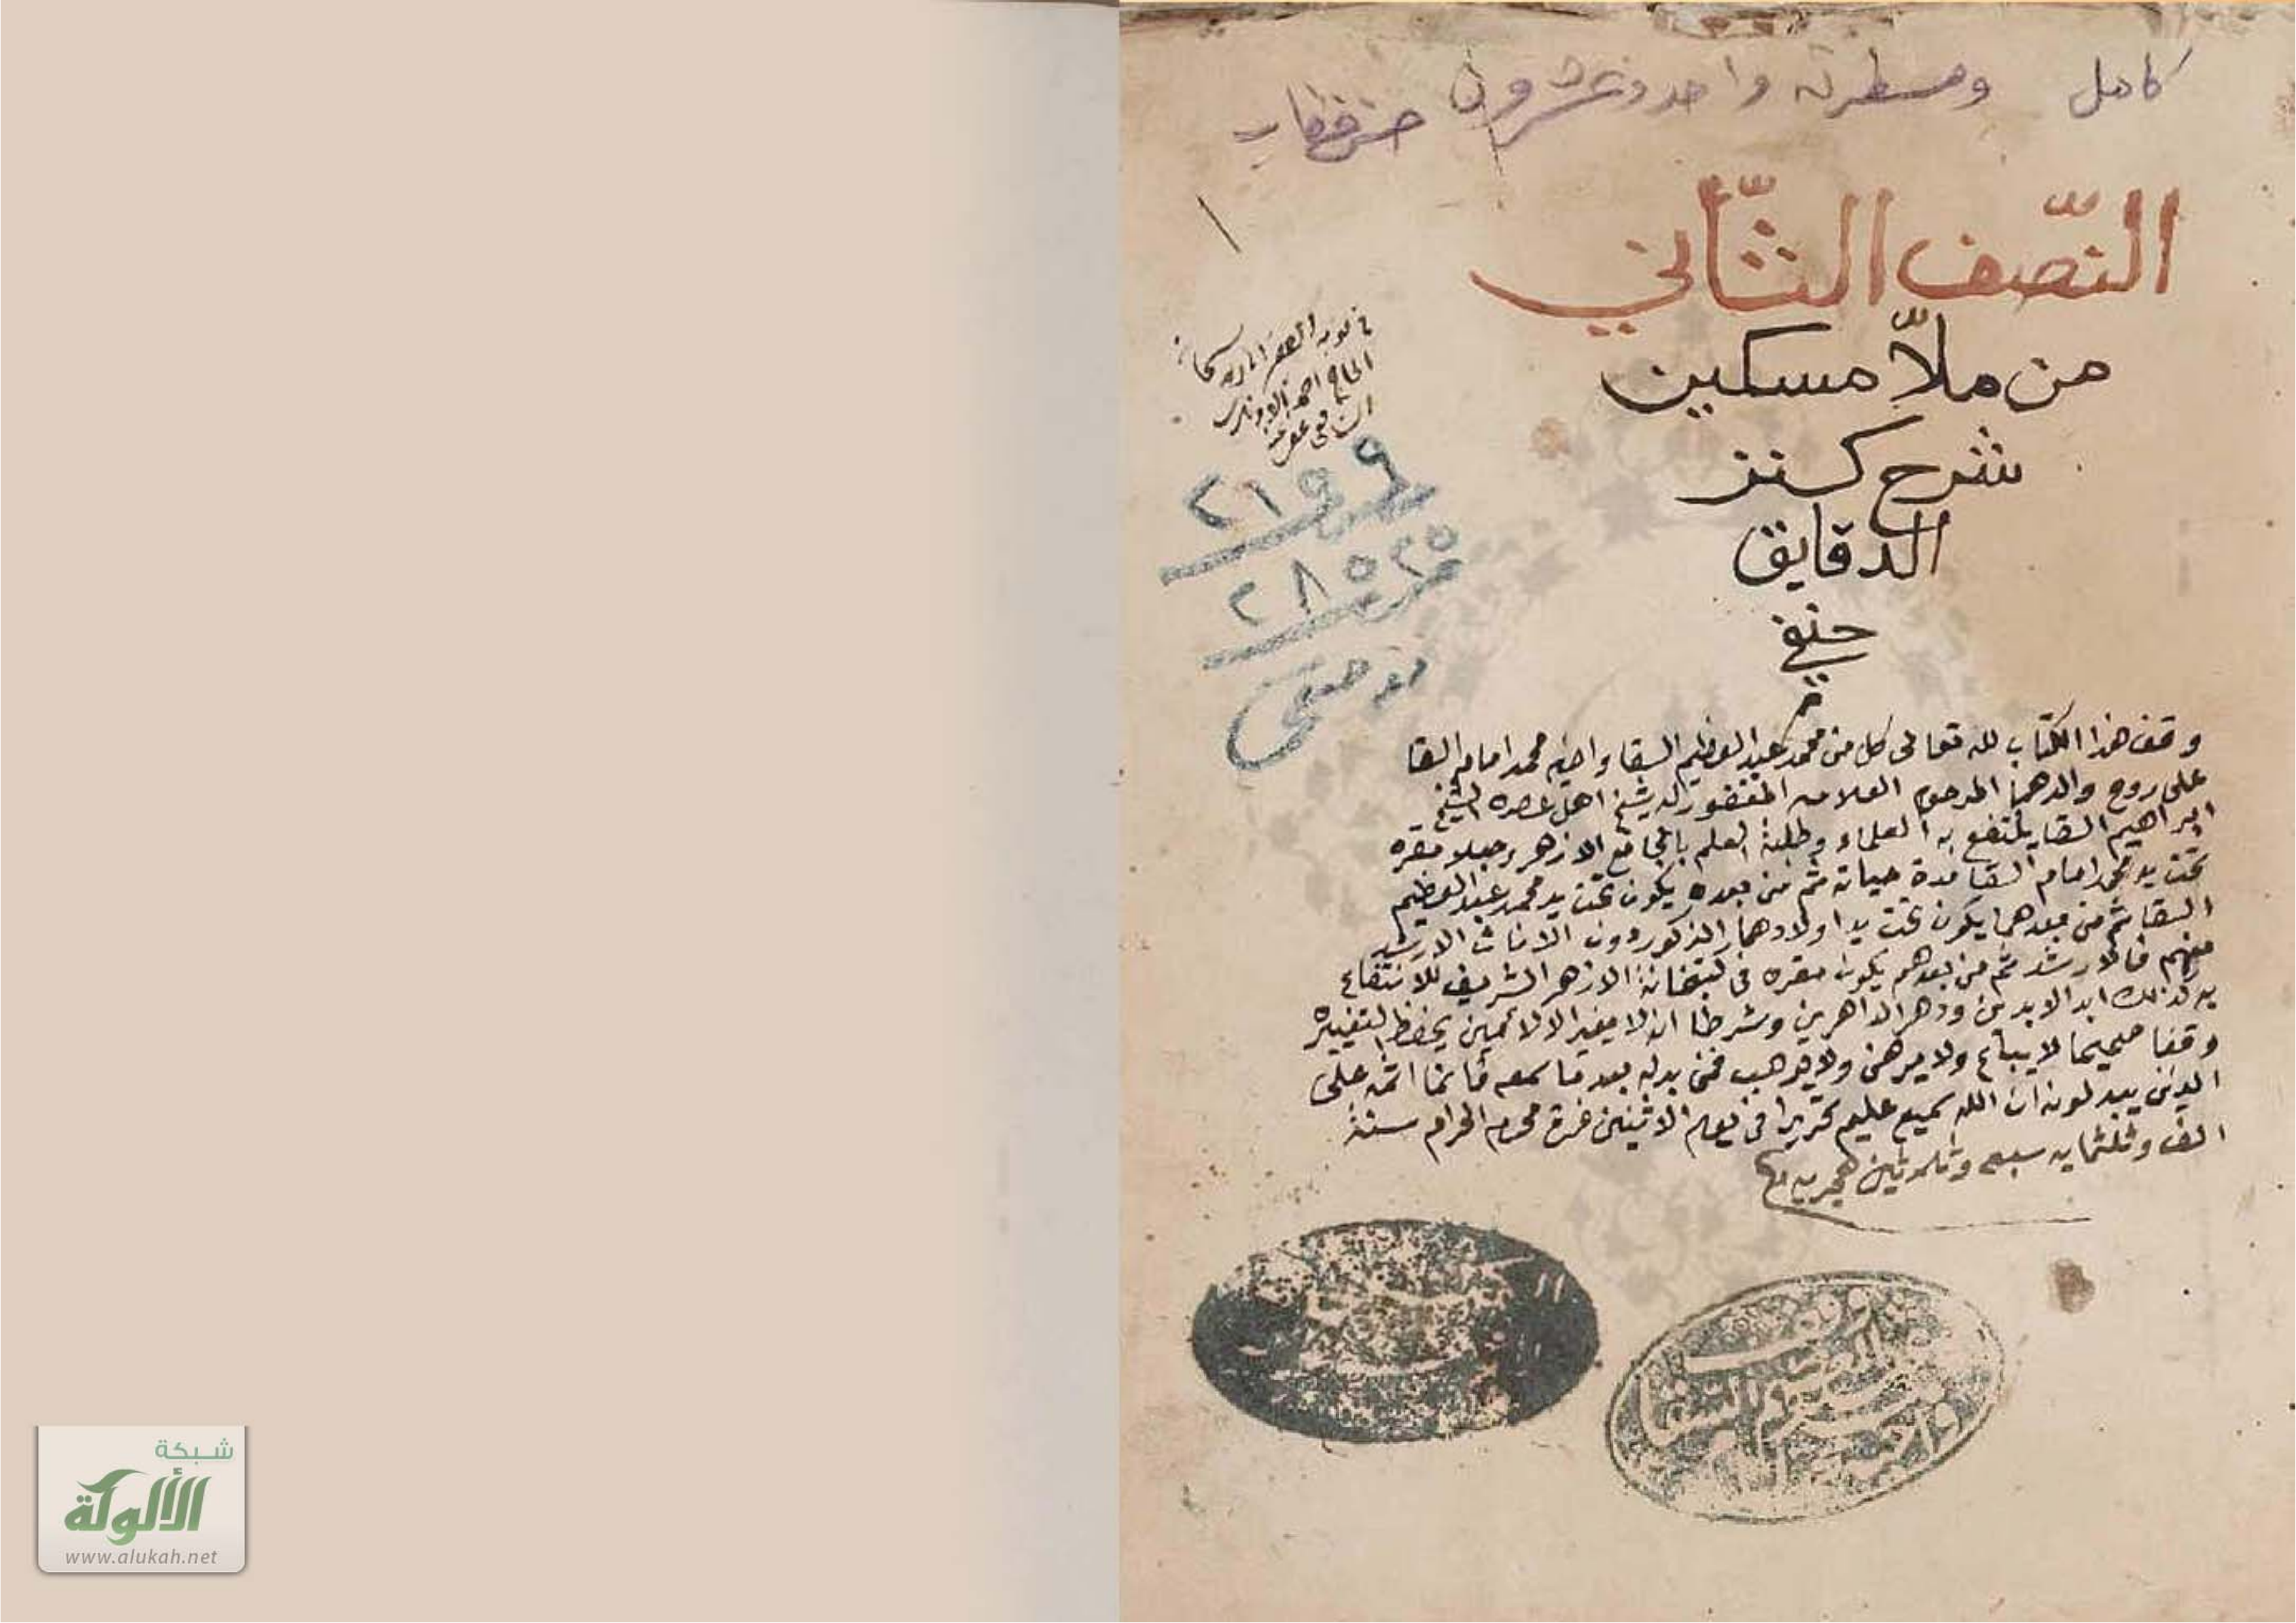 كامل ومسطرته واحد وعشرون
النّصف الثّاني
من ملاّ مسكين
شرح كنز
الدقايق
حنفي
في نوبة الفقير اليه سبحانه
الحاج احمد
الشافعي عفي عنه
٢١٩٩
٢٨٥٢٥
حنفي
وقف هذا الكتاب لله تعالى كل من محمد عبد العظيم السقا واخيه محمد امام السقا
على روح والدهما المرحوم العلامه المغفور له شيخ اهل عصره الشيخ
ابراهيم السقا ينتفع به العلماء وطلبة العلم بالجامع الازهر وجعلا مقره
تحت يد محمد امام السقا مدة حياته ثم من بعده يكون تحت يد محمد عبد العظيم
السقا ثم من بعدهما يكون تحت يد اولادهما الذكور دون الاناث الارشد
منهم فالارشد ثم من بعدهم يكون مقره في كتبخانة الازهر الشريف للانتفاع
به كذلك ابد الابدين ودهر الداهرين وشرطا ان لا يغير الا لامين يحفظ لتغييره
وقفا صحيحا لا يباع ولا يرهن ولا يوهب فمن بدله بعد ما سمعه فانما اثمه على
الذين يبدلونه ان الله سميع عليم تحريرا في يوم الاثنين غرة محرم الحرام سنة
الف وثلثمايه سبعه وثلاثين هجريه
وقف
السقا
شبكة
الألوكة
www.alukah.net